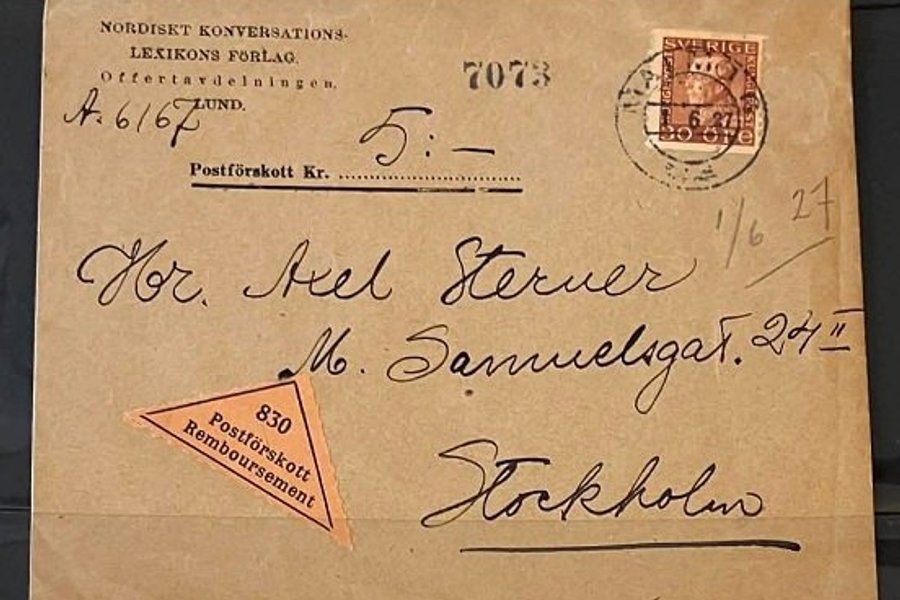 NORDISKT KONVERSATIONS-
LEXIKONS FÖRLAG.
Offertavdelningen.
LUND.
A. 6167
7073
SVERIGE
30 ÖRE
1 6. 27
Postförskott Kr. 5:—
1/6 27
Hr. Axel Sterner
M. Samuelsgat. 24 II
830
Postförskott
Remboursement
Stockholm